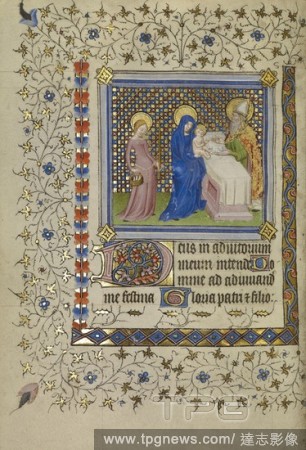 Deus in adiutorium
meum intende Do
mine ad adiuuand
me festina Gloria patri et filio:
TPG
www.tpgnews.com/達志影像